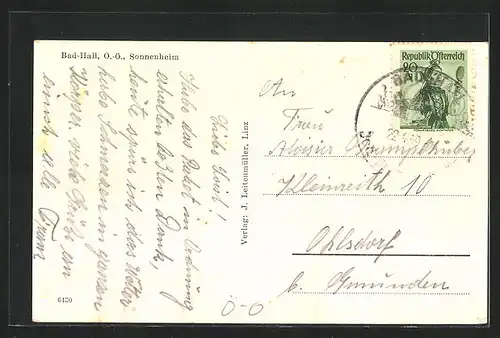 Bad-Hall, O.-Ö., Sonnenheim
Liebe Loisl!
Habe das Packet in Ordnung
erhalten besten Dank,
heute spüre ich das Wetter
habe Schmerzen im ganzen
Körper. viele Grüße an
euch alle
Verlag: J. Leitenmüller, Linz
6430
O-O
Republik Österreich
20
BAD HALL
An
Frau
Aloisia
Kleinreith 10
Ohlsdorf
b. Gmunden